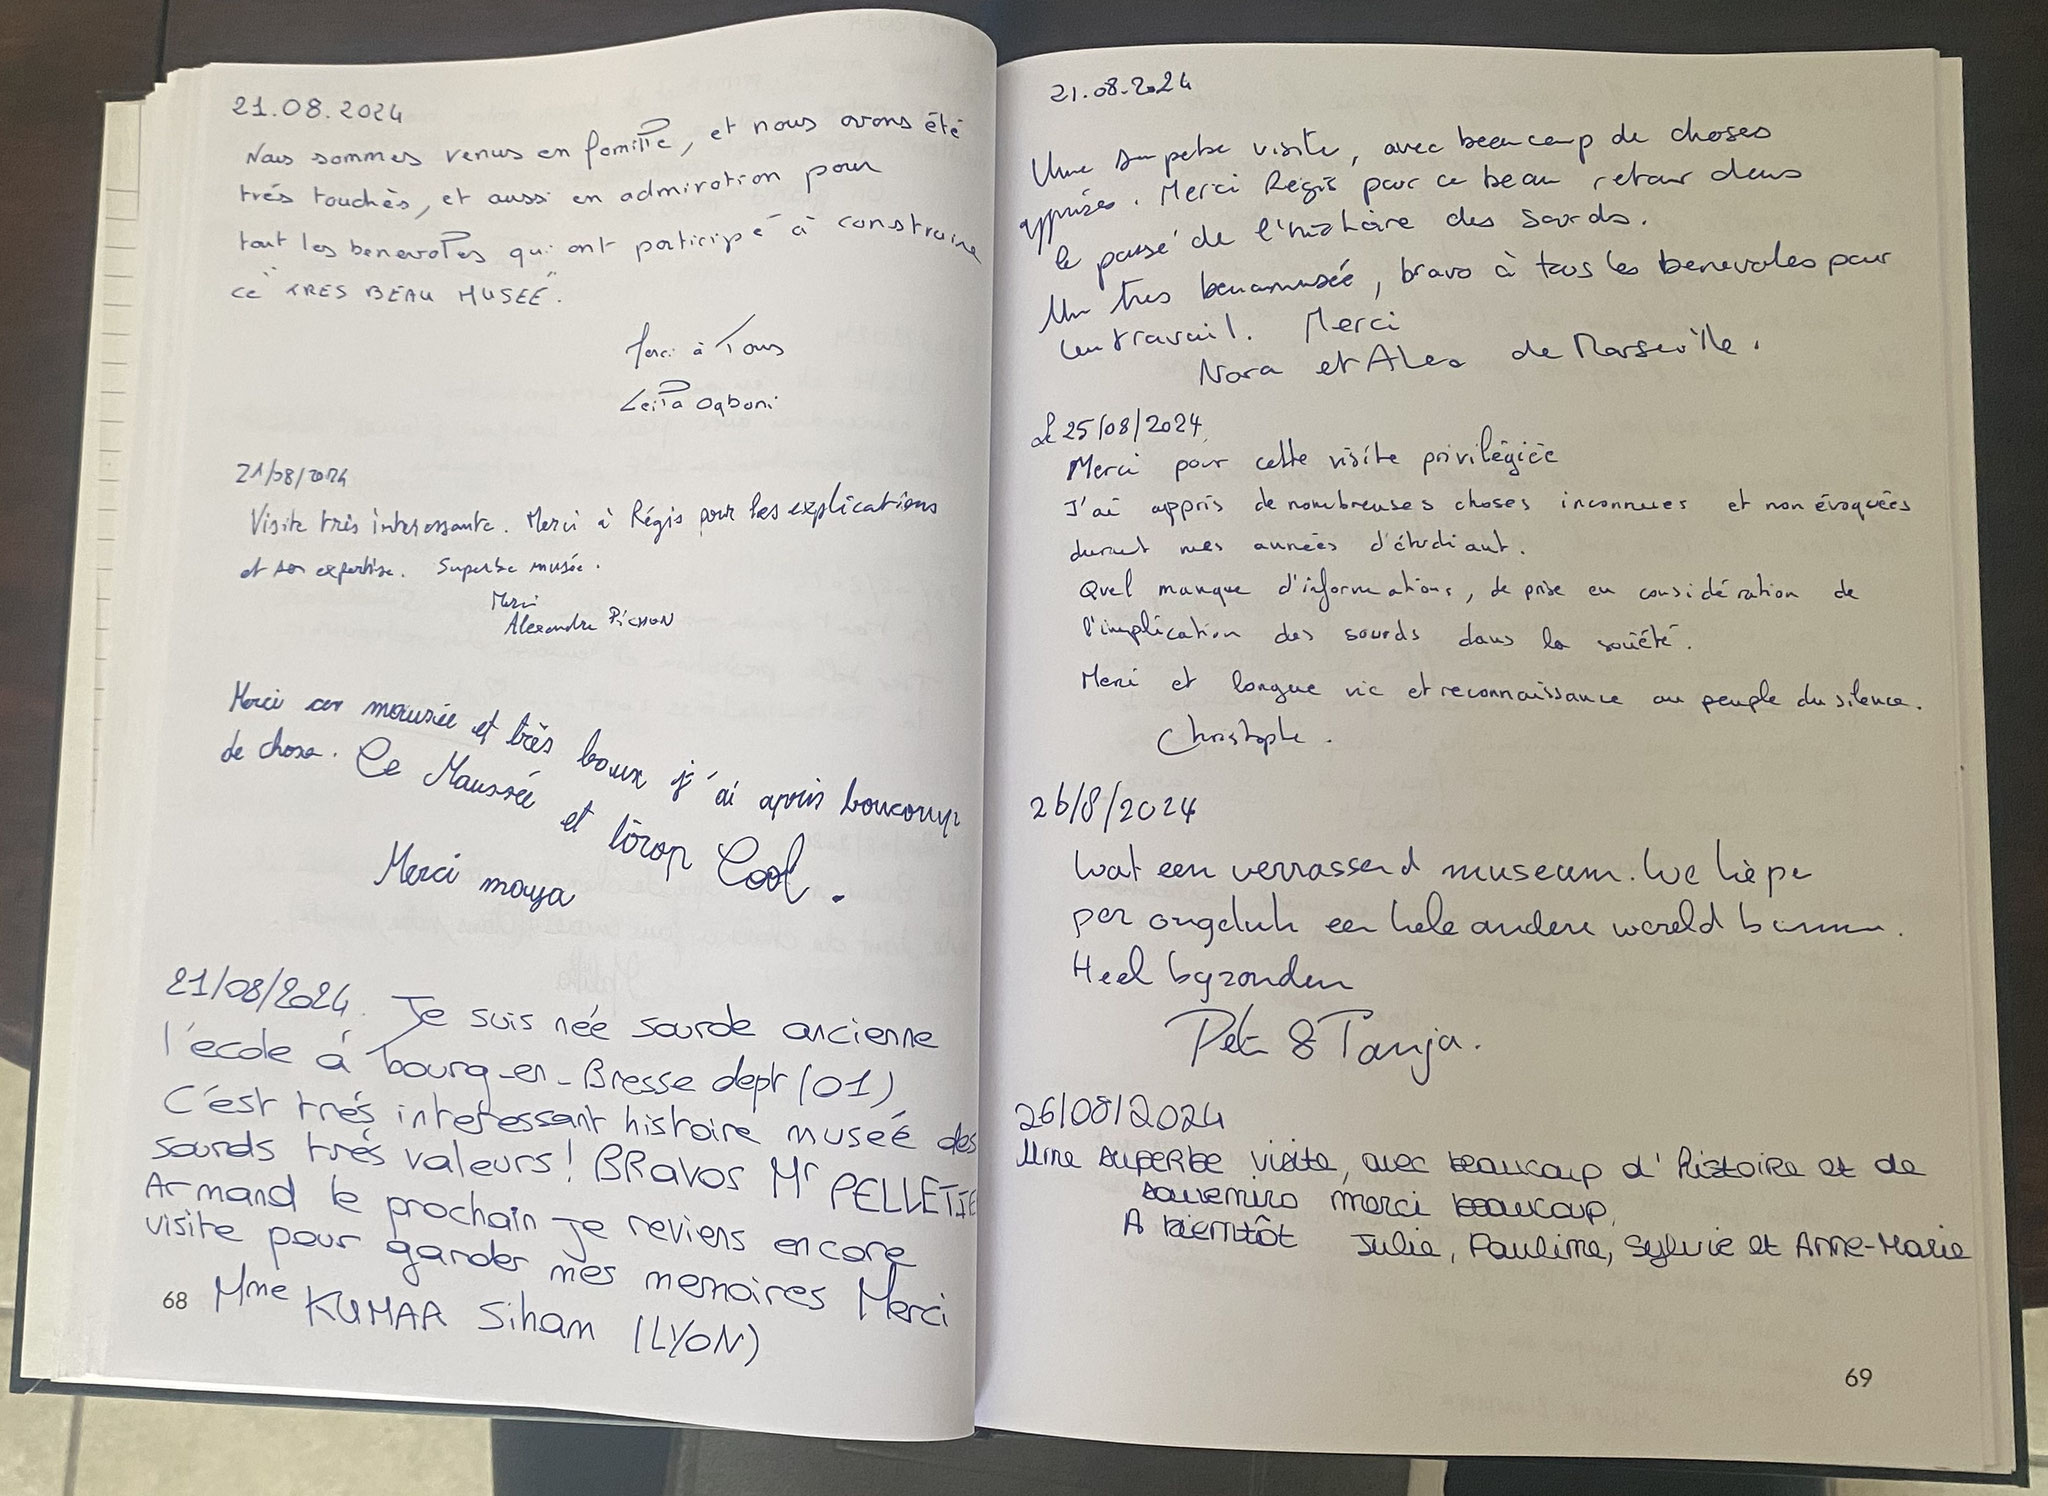 21.08.2024
Nous sommes venus en famille, et nous avons été
trés touchès, et aussi en admiration pour
tout les benevoles qui ont participé à construire
ce "TRES BEAU MUSEE".
Merci à Tous
Leila Ogboni
21/08/2024
Visite très intéressante. Merci à Régis pour les explications
et son expertise. Superbe musée.
Merci
Alexandre PICHON
Merci cer mousée et très baux j'ai apris boucoup
de chose. Ce Maussée et tòrop Cool.
Merci maya
21/08/2024. Je suis née sourde ancienne
l'école á bourg-en-Bresse dept (01)
C'est trés interessant histoire museé des
sourds trés valeurs! BRavos Mr PELLETIE
Armand le prochain je reviens encore
visite pour garder mes memoires Merci
Mme KUMAR Siham (LYON)
68
21.08.2024
Une superbe visite, avec beaucoup de choses
apprises. Merci Régis pour ce beau retour dans
le passé de l'histoire des sourds.
Un tres beau musée, bravo à tous les benevoles pour
leur travail. Merci
Nora et Alex de Marseille.
Le 25/08/2024
Merci pour cette visite privilégiée
J'ai appris de nombreuses choses inconnues et non évoquées
durant mes années d'étudiant.
Quel manque d'informations, de prise en considération de
l'implication des sourds dans la société.
Merci et longue vie et reconnaissance au peuple du silence.
Christophe.
26/8/2024
Wat een verrassend museum. We liepe
per ongeluk een hele andere wereld binnen.
Heel byzonder
Petr & Tanja.
26/08/2024
Une superbe visite, avec beaucoup d'histoire et de
souvenirs merci beaucoup,
A bientôt Julie, Pauline, Sylvie et Anne-Marie
69